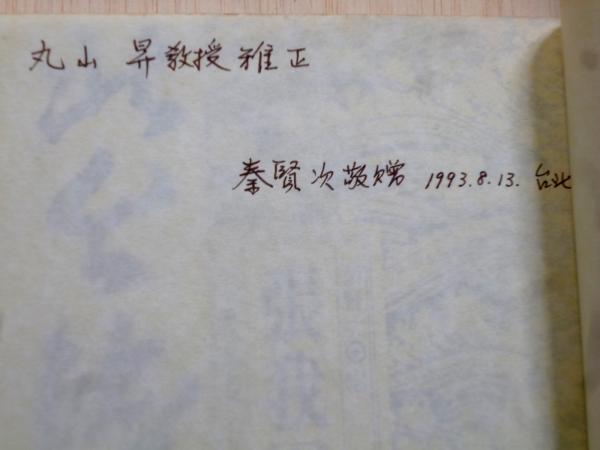 丸山 昇教授雅正
秦賢次敬贈 1993.8.13. 台北